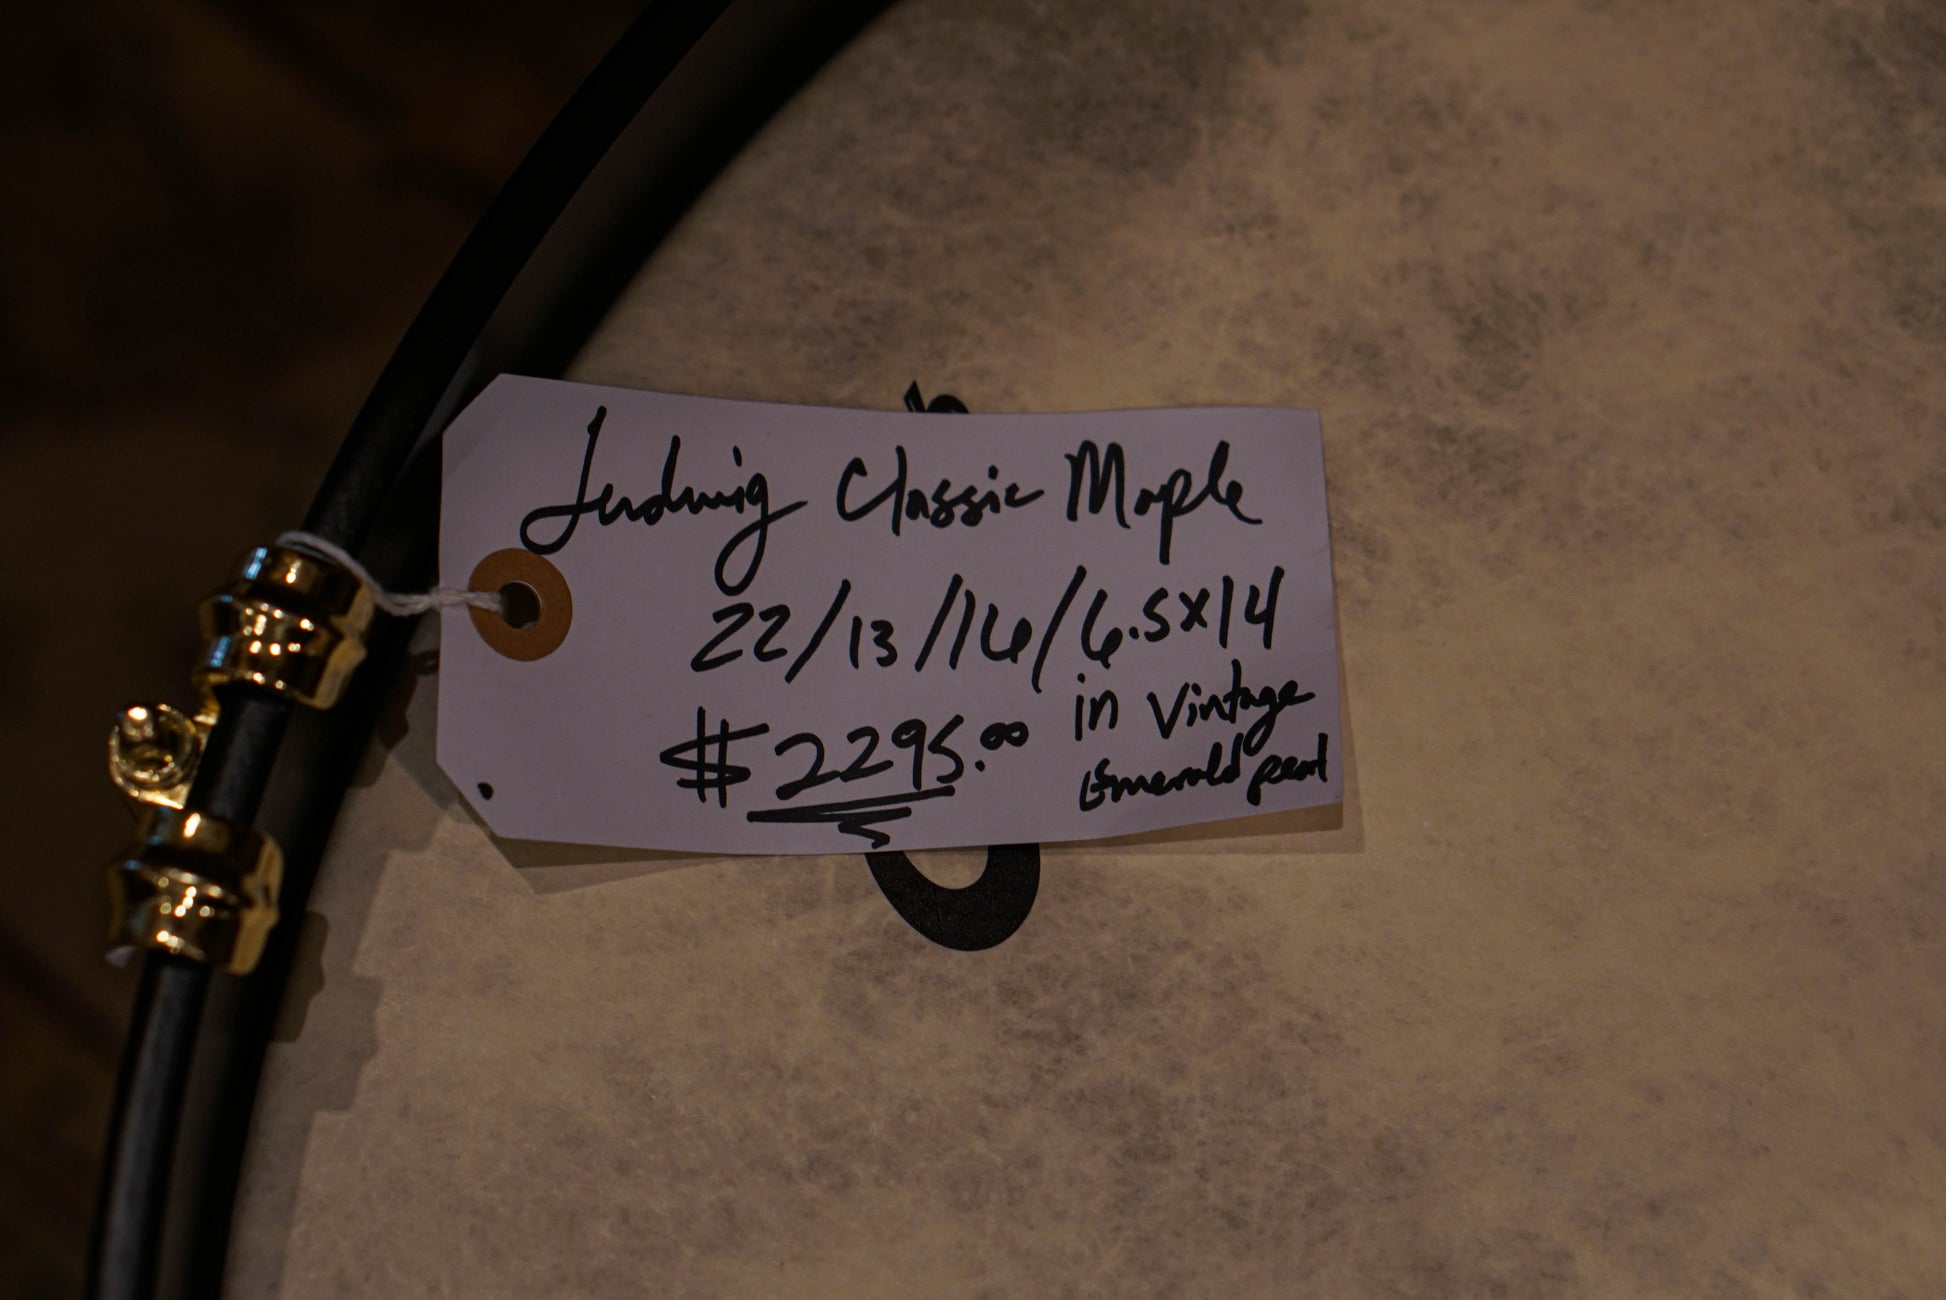 Ludwig Classic Maple
22/13/16/6.5x14
$2295.00 in Vintage
Emerald pearl